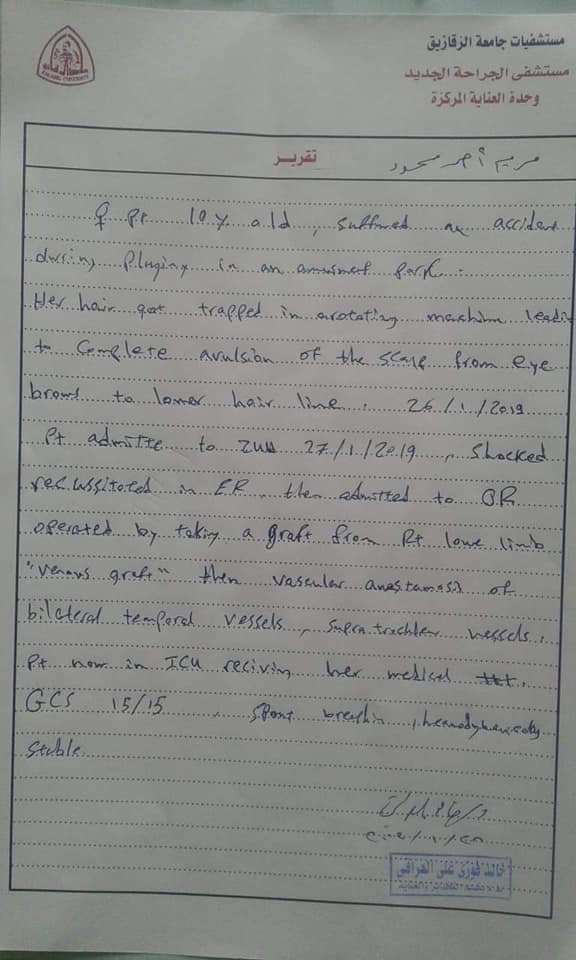 مستشفيات جامعة الزقازيق
مستشفى الجراحة الجديد
وحدة العناية المركزة
ZAGAZIG UNIVERSITY
تقرير
مريم أحمد محمود
♀ Pt 10 y old, suffered an accident
during pluging in an amusment park.
Her hair got trapped in a rotating machine leading
to complete avulsion of the scalp from eye
brows to lower hair line. 26/1/2019
Pt admitte to ZUH 27/1/2019, shocked
recussitated in ER, then admitted to OR
operated by taking a graft from Rt lowe limb
"venous graft" then vascular anastamosis of
bilateral temporal vessels, supratrochlear vessels.
Pt now in ICU reciving her medical ttt.
GCS 15/15, spont breathin, hemodynamically
stable.
خالد فوزى على العراقى